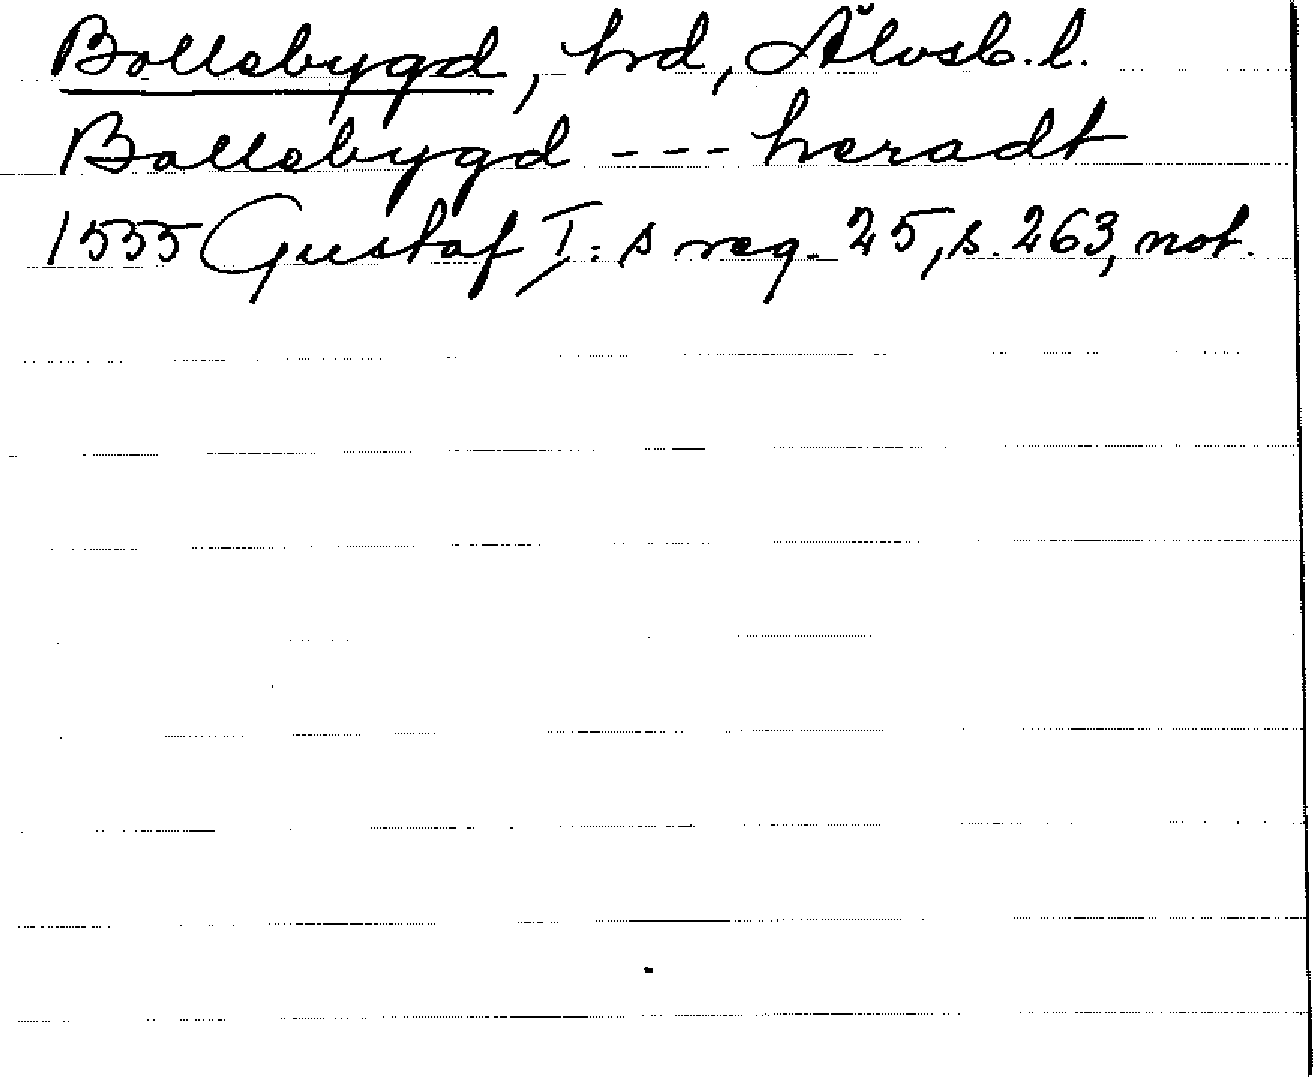 Bollebygd, hd, Älvsb. l.
Bollebygd --- heradt
1555 Gustaf I: s reg. 25, s. 263, not.